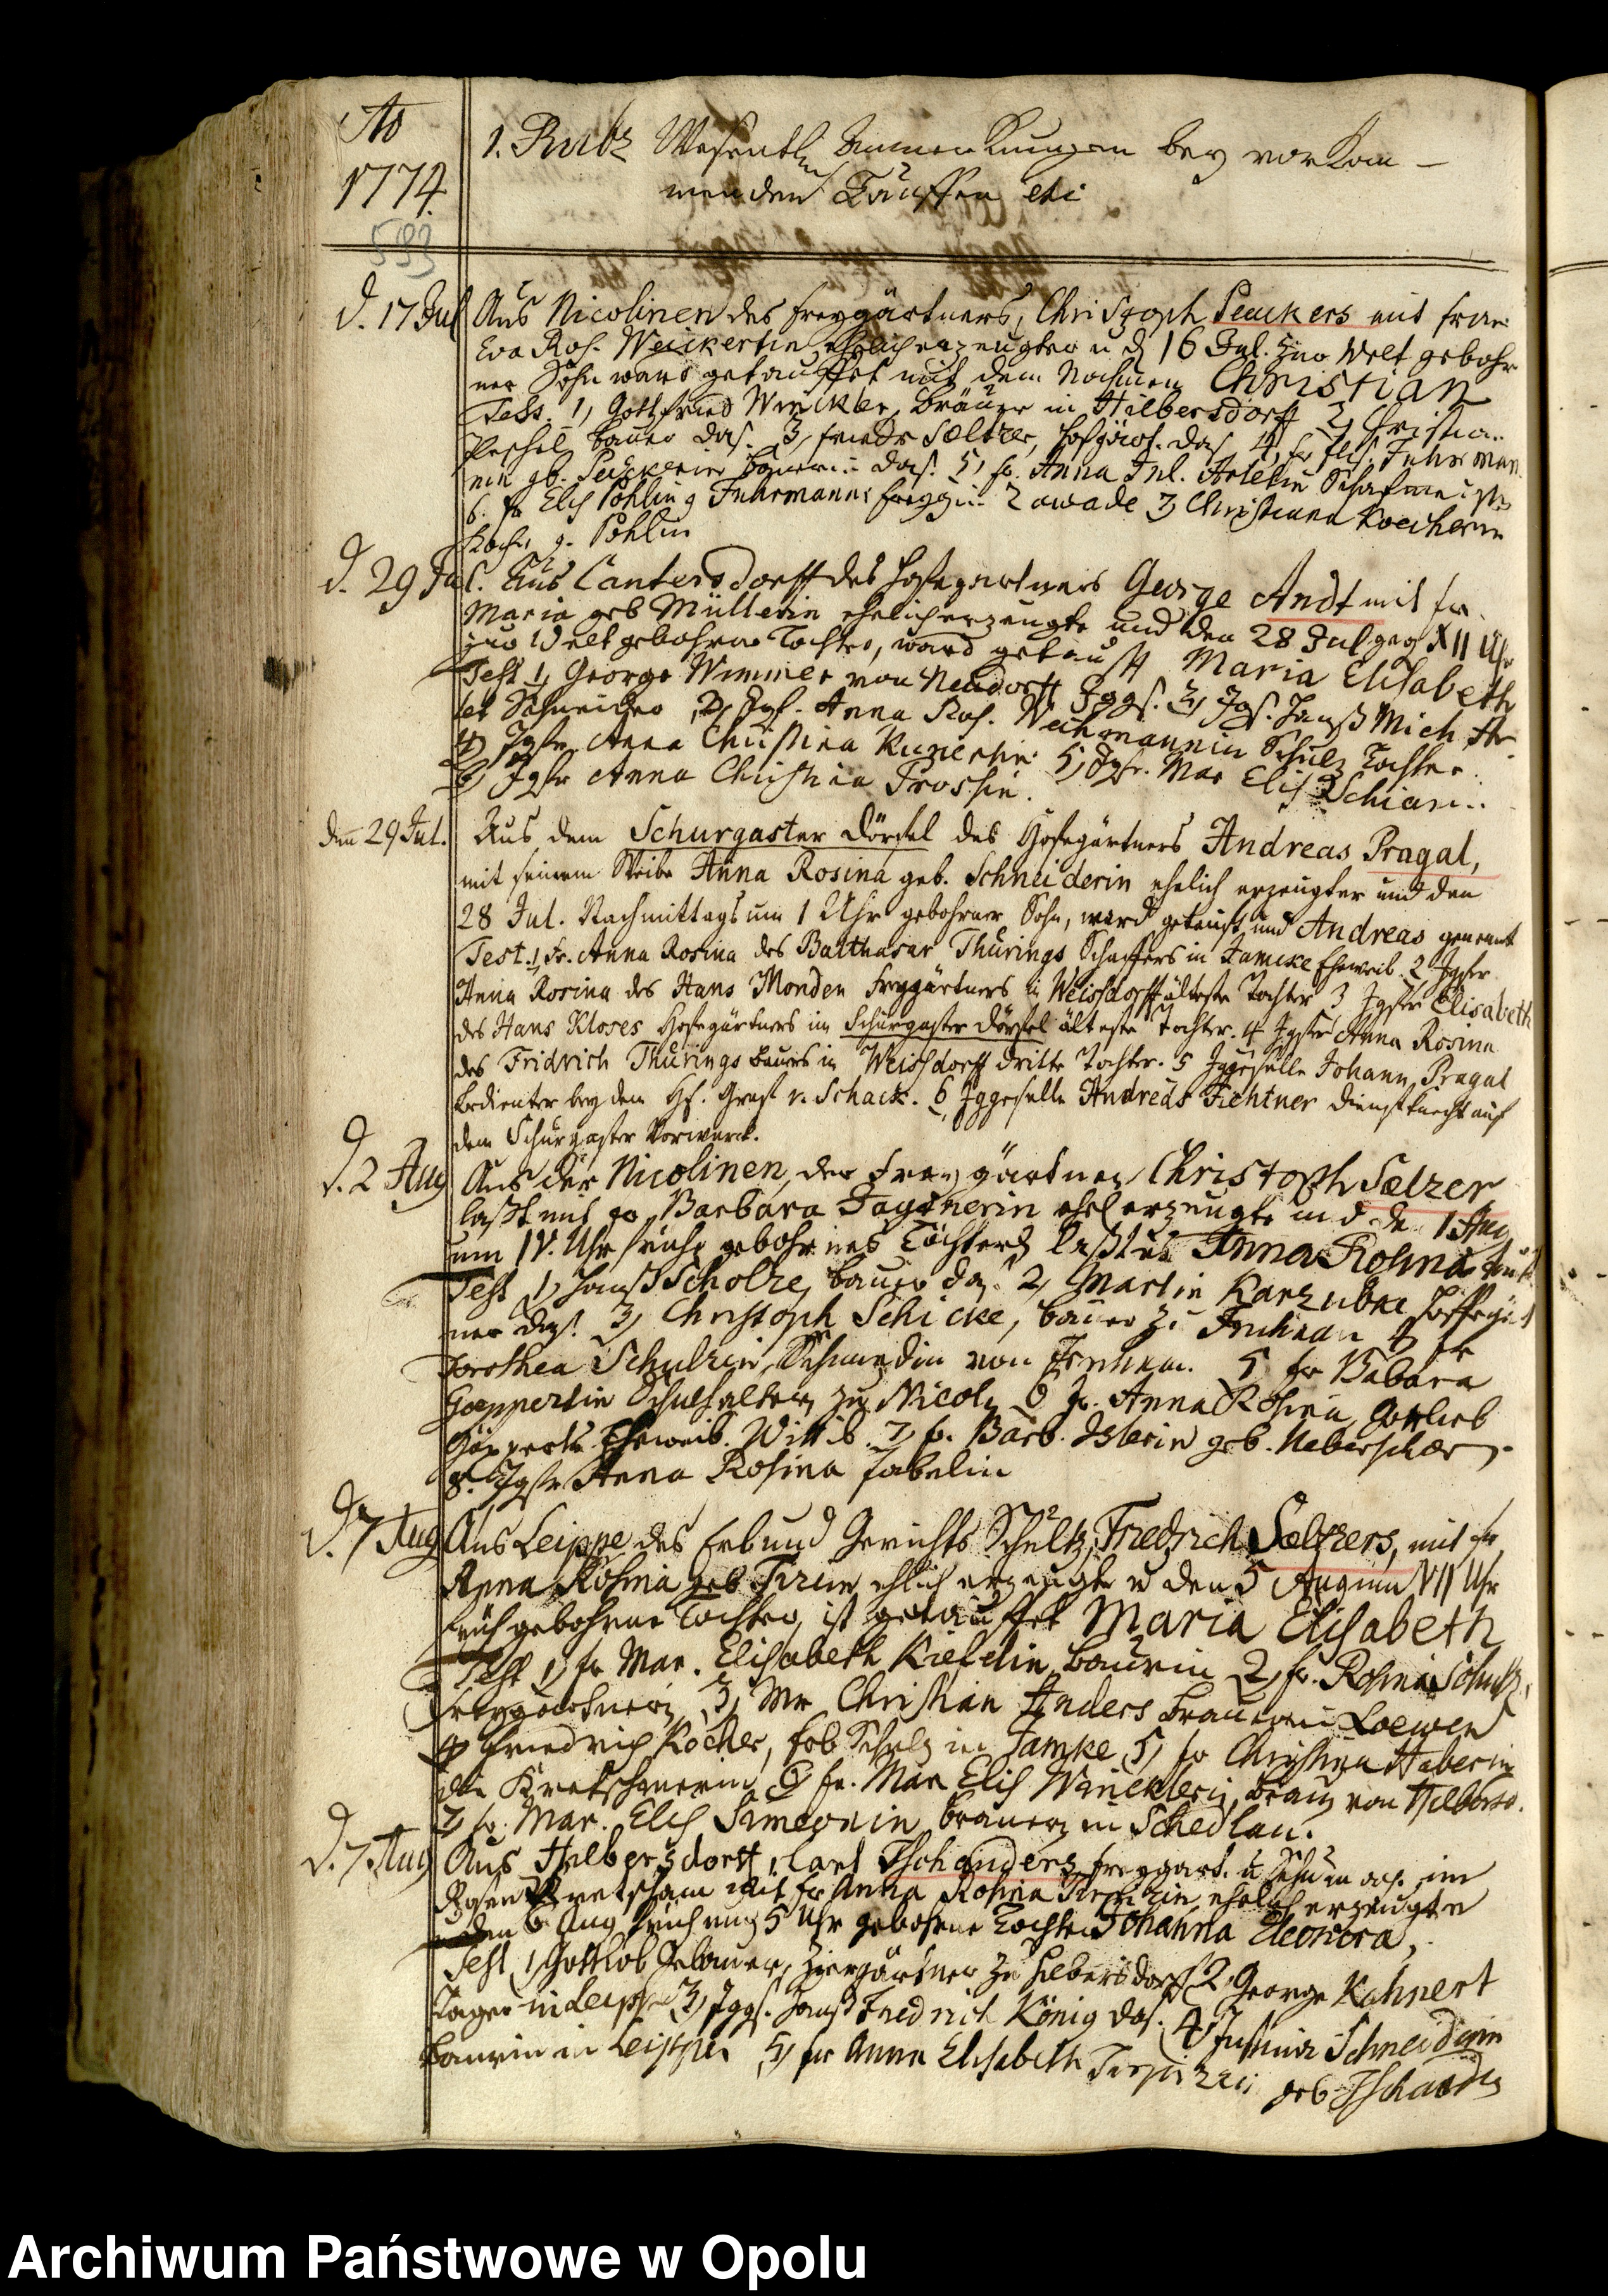 Ao
1774.
593
1. Rubr Wesentl. Anmerkungen bey vorkom-
menden Tauffen etc
d. 17 Jul Aus Nicolinen des Freygärtners, Christoph Peuckers mit frau
Eva Ros. Weickertin, ehelich erzeugter u d 16 Jul. zur Welt gebohr
ner Sohn ward getauffet mit dem Nahmen Christian
Test. 1, Gottfried Winckler, Bräuer in Hilbersdorff 2, Christian
Peschel Bauer das. 3, Friedr Seltzer, das. 4, fr Elis. Fuhrman
nin gb. Peuckerin Bauerin das. 5, fr. Anna Jul.
6. fr Elis Pohlin g Fuhrmann Zawade 7, Christiana Koecherin
Koch g. Pohlin
d. 29 Jul. Aus Cantersdorff des Hofegartners George Andt mit fr.
Maria geb Müllerin ehelich erzeugte und den 28 Jul geg XII Uhr
zur Welt gebohrne Tochter, ward getaufft Maria Elisabeth
Test 1, George Wimmer von Neudorff Jggs. 2, Jgs. Hanß Mich
Schneider 3, Jgf. Anna Ros. Weihmannin Schulz Tochter.
4, Jgfr Anna Christina Kunertin 5, Jgfr. Mar Elis Schian
6, Jgfr Anna Christina Troskin.
den 29 Jul. Aus dem Schurgaster Dörfel des Hofegärtners Andreas Pragal,
mit seinem Weibe Anna Rosina geb. Schneiderin ehelich erzeugter und den
28 Jul. Nachmittags um 1 Uhr gebohrner Sohn, ward getauft und Andreas genennt
Test. 1, Fr. Anna Rosina des Balthasar Thürings Schaffers in Jamcke Eheweib. 2 Jgfer
Anna Rosina des Hans Monden Freygärtners in Weisdorff älteste Tochter 3 Jgfer Elisabeth
des Hans Kloses Hofegärtners im Schurgaster Dörfel älteste Tochter. 4 Jgfer Anna Rosina
des Fridrich Thürings Bauers in Weissdorff dritte Tochter. 5 Jggeselle Johann Pragal
Bedienter bey dem Hf. Graf v. Schack. 6, Jggeselle Andreas Fichtner Dienstknecht auf
dem Schurgaster Vorwerck.
d. 2 Aug Aus der Nicolinen, der Freygärtner Christoph Selzer
laßt mit fr Barbara ehel erzeugte und den 1 Aug
um IV. Uhr frühe gebohrnes Töchterl Anna Rosina
Test 1, Hanß Scholze Bauer das. 2, Martin Karzubke Hoffegärt
ner das. 3, Christoph Schicke, Bauer zu 4, fr
Dorothea Schulzin, Schmedin von 5 fr Babara
Goeppertin Schulhalterin zu Nicoln 6 fr. Anna Rosina, Gottlieb
Göpperts Eheweib. Wittib. 7, fr. Barb. Islerin geb. Ueberschaer.
8. Jgfr Anna Rosina Fabelin
d. 7 Aug Aus Leippe des Erb und Gerichts Schultz, Friedrich Seltzers, mit fr
Anna Rosina geb ehlich erzeugte u den 5 Aug um VII Uhr
früh gebohrne Tochter, ist getauffet Maria Elisabeth
Test 1, fr Mar. Elisabeth Bauerin 2, fr. Rosina Schultz
Freygärtnerin 3, Mr Christian Anders Brauer in Loewen
4, Friedrich Kocher, Erb Schulz in Jamke 5, fr Christina Haberin
die Kretschmerin 6, fr. Mar Elis Wincklerin, Brau von Hilbersd.
7, fr. Mar. Elis Simeonin Brauerin in Schedlau.
d. 7 Aug Aus Hilbersdorff, Carl Tschanders Freygart. u im
Rosen Kretscham mit fr Anna Rosina ehelich erzeugte
u den 6 Aug früh um 5 Uhr gebohrne Tochter Johanna Eleonora,
Test 1, Gottlob Gebauer, Ziergärtner zu Hilbersdorf 2, George Kahnert
Jäger in Leippe 3, Jggs. Hanß Friedrich König das. 4, Justina Schneiderin
Bauerin in Leippe 5, fr Anna Elisabeth geb Tschander
Archiwum Państwowe w Opolu